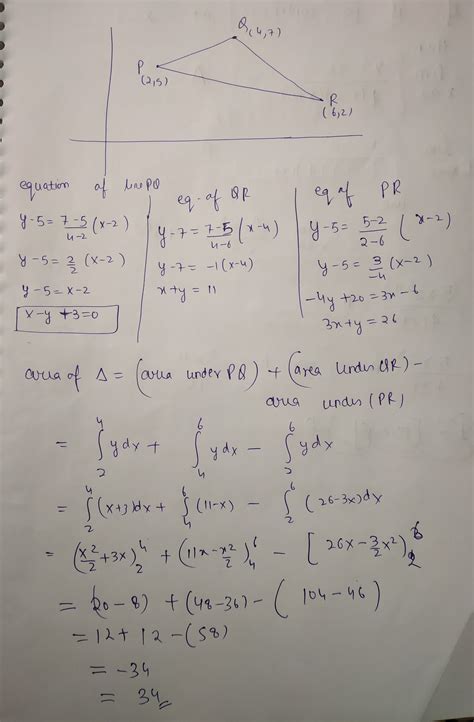 Q(4,7)
P
(2,5)
R
(6,2)
equation of line PQ
y-5 = 7-5/4-2 (x-2)
y-5 = 2/2 (x-2)
y-5 = x-2
x-y+3=0
eq. of QR
y-7 = 7-5/4-6 (x-4)
y-7 = -1(x-4)
x+y = 11
eq of PR
y-5 = 5-2/2-6 (x-2)
y-5 = 3/-4 (x-2)
-4y+20 = 3x-6
3x+y = 26
area of Δ = (area under PQ) + (area under QR) -
area under (PR)
= ∫₂⁴ y dx + ∫₄⁶ y dx - ∫₂⁶ y dx
= ∫₂⁴ (x+3)dx + ∫₄⁶ (11-x) - ∫₂⁶ (26-3x)dx
= (x²/2 + 3x)₂⁴ + (11x - x²/2)₄⁶ - [26x - 3/2 x²)₂⁶
= (20-8) + (48-36) - (104-46)
= 12 + 12 - (58)
= -34
= 34